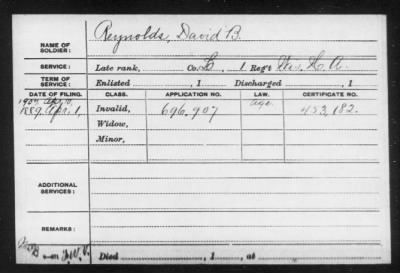 NAME OF SOLDIER: Reynolds, David B.
SERVICE: Late rank, Co. L 1 Reg't Wis. H. A.
TERM OF SERVICE: Enlisted , 1 Discharged , 1
DATE OF FILING. CLASS. APPLICATION NO. LAW. CERTIFICATE NO.
Apr. 10 Age.
Apr. 1, Invalid, 696,907 453,182.
Widow,
Minor,
ADDITIONAL SERVICES:
REMARKS:
Died , 1 , at